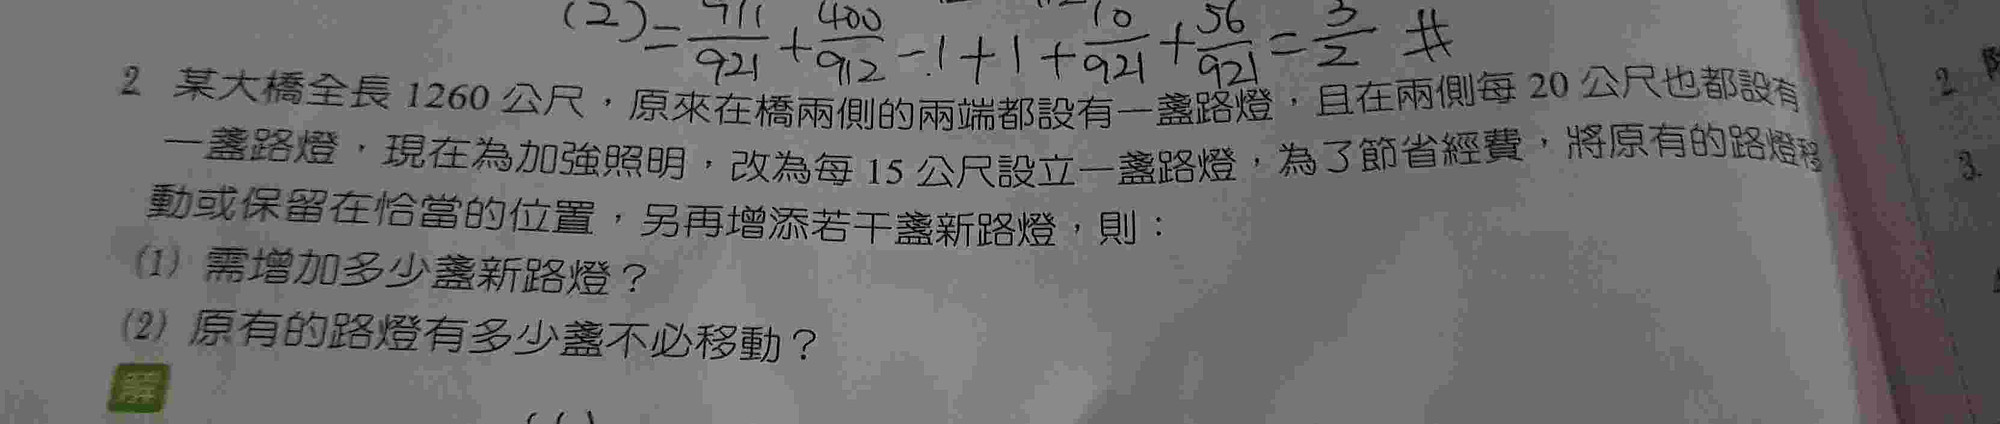 (2) = 911/921 + 400/912 - 1 + 1 + 10/921 + 56/921 = 3/2 #
2 某大橋全長 1260 公尺，原來在橋兩側的兩端都設有一盞路燈，且在兩側每 20 公尺也都設有
一盞路燈，現在為加強照明，改為每 15 公尺設立一盞路燈，為了節省經費，將原有的路燈移
動或保留在恰當的位置，另再增添若干盞新路燈，則：
(1) 需增加多少盞新路燈？
(2) 原有的路燈有多少盞不必移動？
解
2
3.